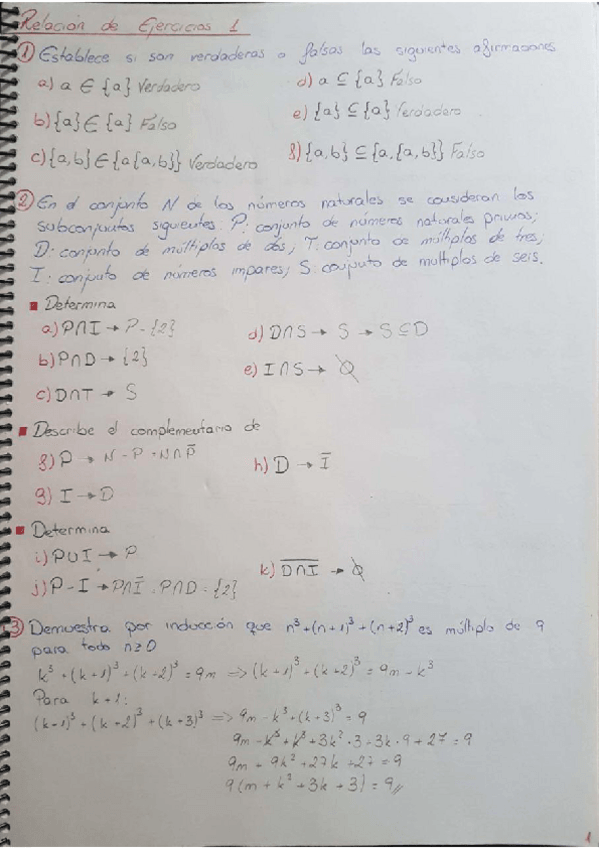 Relación de Ejercicios 1
① Establece si son verdaderas o falsas las siguientes afirmaciones
a) a ∈ {a} Verdadero
d) a ⊆ {a} Falso
b) {a} ∈ {a} Falso
e) {a} ⊆ {a} Verdadero
c) {a,b} ∈ {a{a,b}} Verdadero
f) {a,b} ⊆ {a,{a,b}} Falso
② En el conjunto N de los números naturales se consideran los
subconjuntos siguientes. P: conjunto de números naturales primos;
D: conjunto de múltiplos de dos; T: conjunto de múltiplos de tres;
I: conjunto de números impares; S: conjunto de multiplos de seis.
Determina
a) P∩I → P - {2}
d) D∩S → S → S⊆D
b) P∩D → {2}
e) I∩S → ∅
c) D∩T → S
Describe el complementario de
f) P → N - P = N∩P̅
h) D → I̅
g) I → D
Determina
i) P∪I → P
k) D̅∩̅I̅ → ∅
j) P - I → P∩I̅ = P∩D = {2}
③ Demuestra por inducción que n³+(n+1)³+(n+2)³ es múltiplo de 9
para todo n≥0
k³ + (k+1)³ + (k+2)³ = 9m ⇒ (k+1)³ + (k+2)³ = 9m - k³
Para k+1:
(k+1)³ + (k+2)³ + (k+3)³ ⇒ 9m - k³ + (k+3)³ = 9
9m - k³ + k³ + 3k²·3 + 3k·9 + 27 = 9
9m + 9k² + 27k + 27 = 9
9(m + k² + 3k + 3) = 9
1